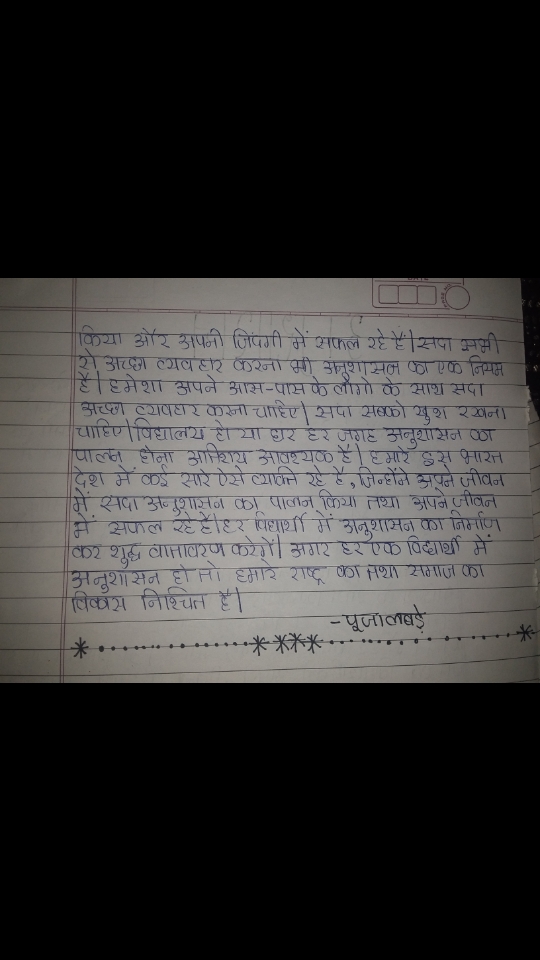 किया और अपनी जिंदगी में सफल रहे हैं| सदा सभी
से अच्छा व्यवहार करना भी अनुशासन का एक नियम
है| हमेशा अपने आस-पास के लोगो के साथ सदा
अच्छा व्यवहार करना चाहिए| सदा सबको खुश रखना
चाहिए| विद्यालय हो या घर हर जगह अनुशासन का
पालन होना अतिशय आवश्यक है| हमारे इस भारत
देश में कई सारे ऐसे व्यक्ति रहे है, जिन्होंने अपने जीवन
में सदा अनुशासन का पालन किया तथा अपने जीवन
में सफल रहे है| हर विद्यार्थी में अनुशासन का निर्माण
कर शुद्ध वातावरण करेगें| अगर हर एक विद्यार्थी में
अनुशासन हो तो हमारे राष्ट्र का तथा समाज का
विकास निश्चित है|
-पूजा लबडे